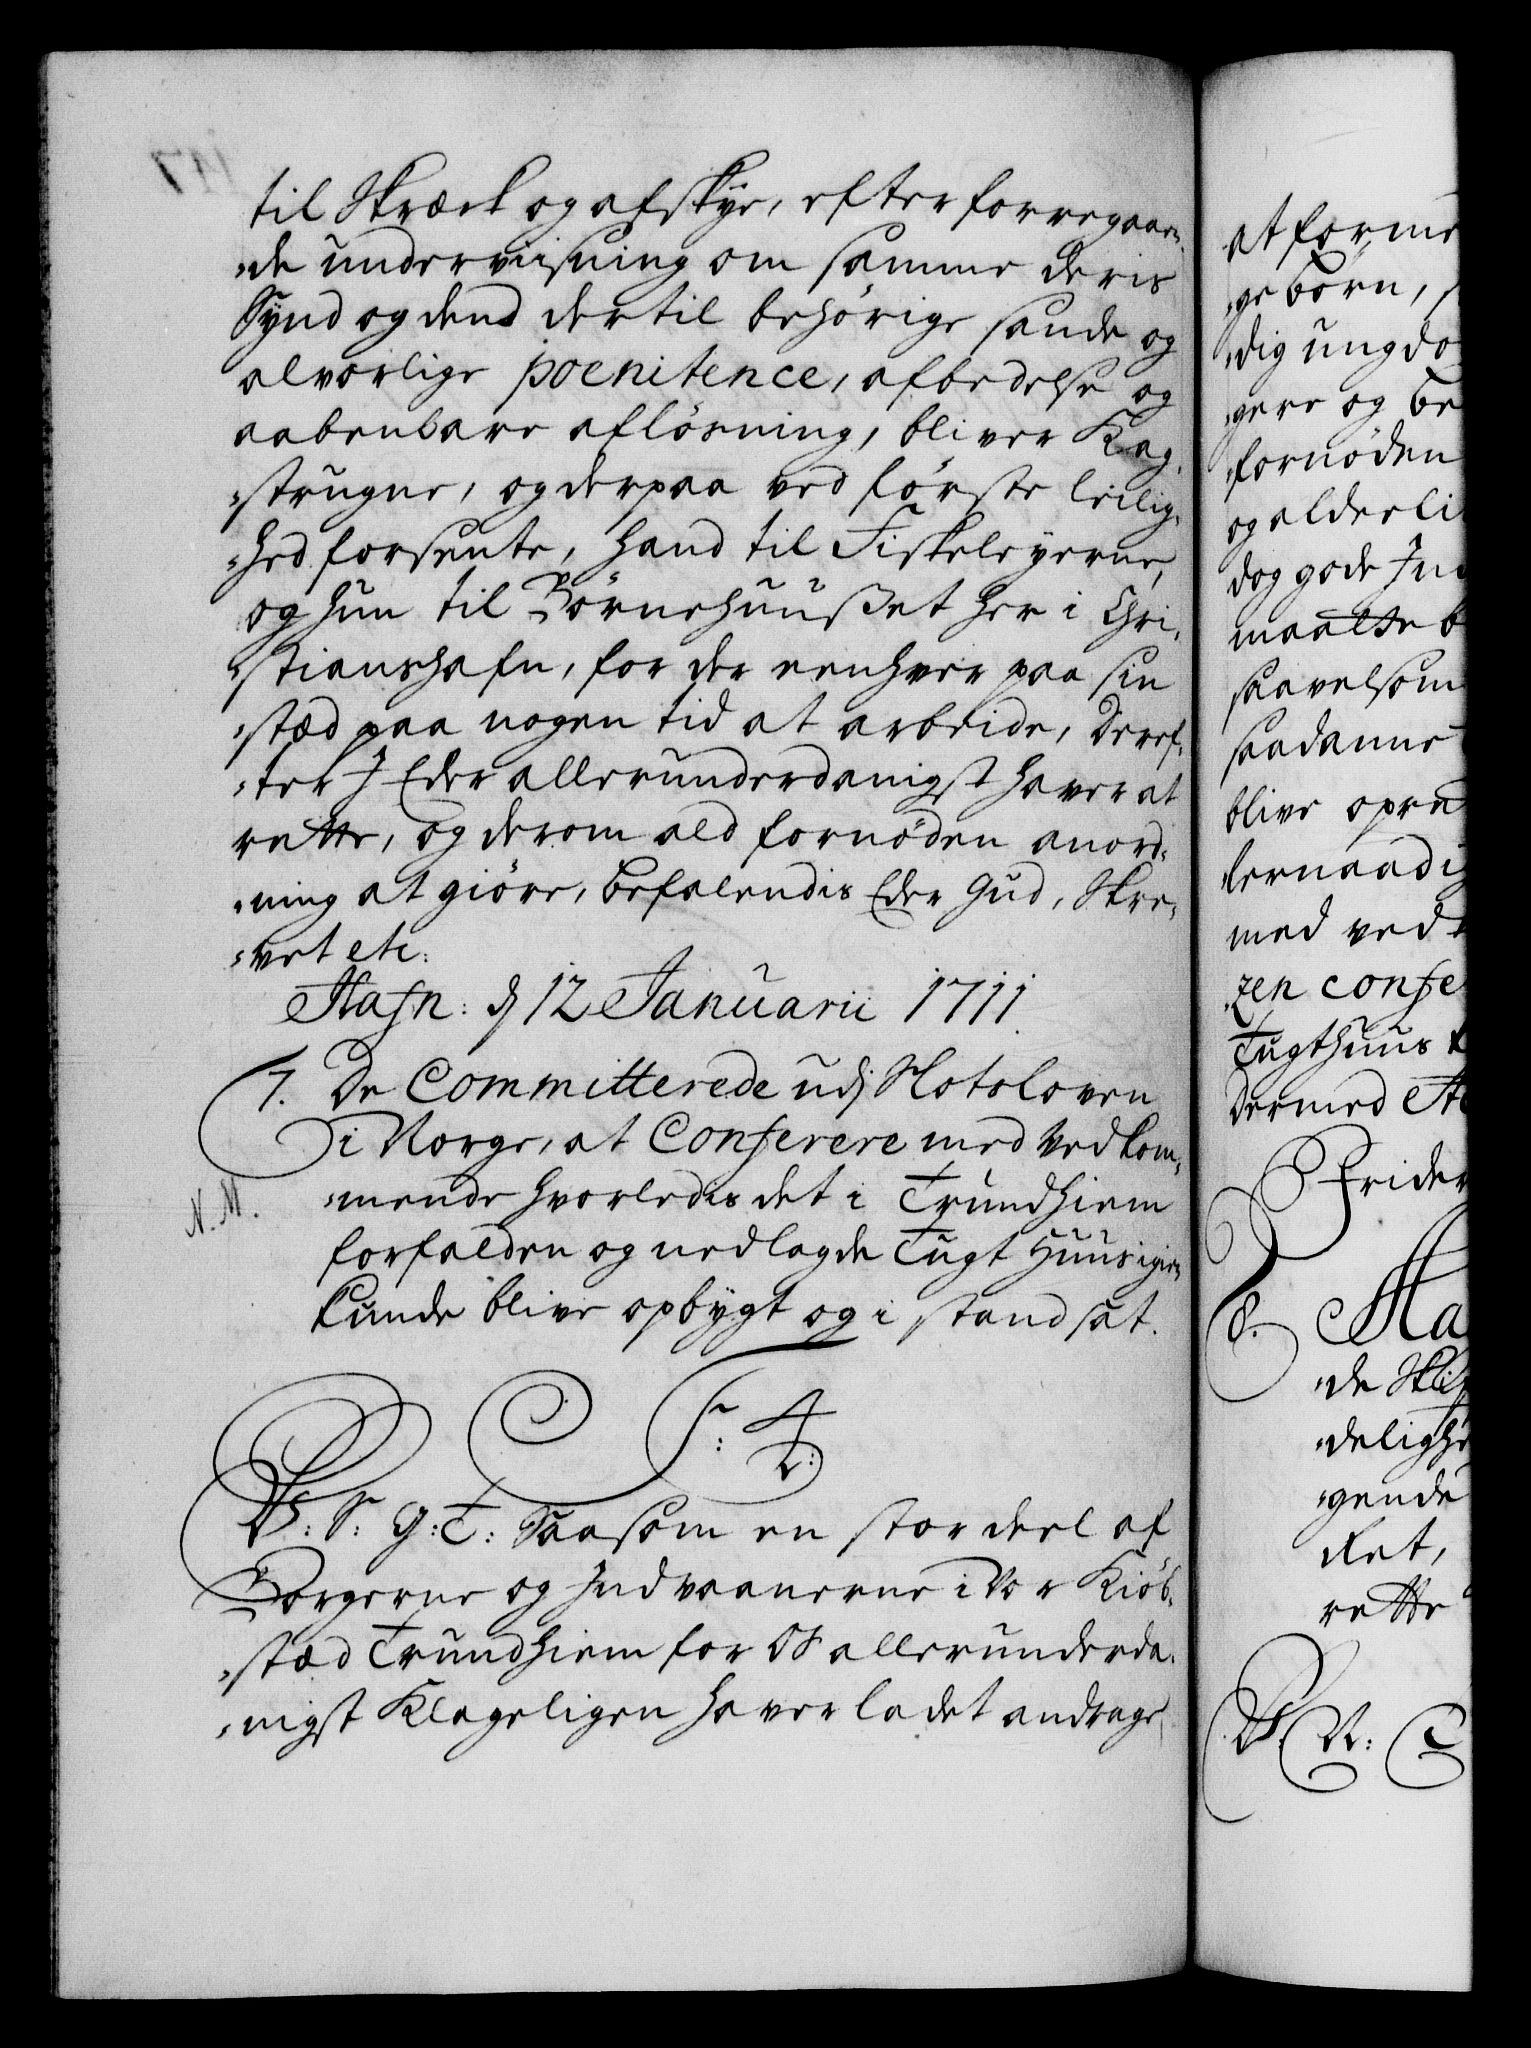 til Skræck og afskye, efter forregaaen-
-de underviisning om samme deris
Synd og dend dertil behörige sande og
alvorlige poenitence, afbedelse og
aabenbare aflösning, bliver Kag-
-strugne, og derpaa ved förste leilig-
-hed forsente, hand til Fiskeleyerne,
og hun til Börnehuuset her i Chri-
-stianshafn, for der eenhver paa sin
-stæd paa nogen tid at arbeide, Deref-
-ter I Eder allerunderdanigst haver at
rette, og derom ald fornöden anord-
-ning at giöre, befalendis Eder Gud, Skre-
-vet etc:
Hafn: d 12 Januarii 1711.
7. De Committerede udj Slotsloven
i Norge, at Conferere med vedkom-
-mende hvorledis det i Trundhiem
N. M.
forfalden og nedlagde Tugt Huus igien
kunde blive opbygt og i stand sat.
F: 4
D:
V: S: G: T: Saasom en stor deel af
Borgerne og Indvaanerne i Vor Kiöb-
-stæd Trundhiem for Os allerunderda-
-nigst Klageligen haver ladet andrage
at forme
-ge börn,
-dig ungdo
-gere og be
-fornöden
og alderli
dog gode In
maatte b
saavelsom
saadanne
blive opre
lernaadig
med ved
zen confe
Tugthuus
Dermed
Frider
8. Ha
-de
-delighe
-gende
Ret,
rette
V. N: